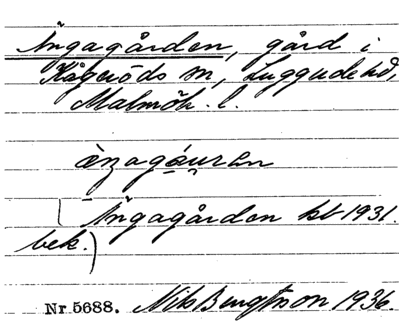 Ängagården, gård i
Kågeröds sn, Luggude hd,
Malmöh. l.
(Ängagården kt 1931.
bek.)
Nr 5688. Nils Bengtsson 1936.